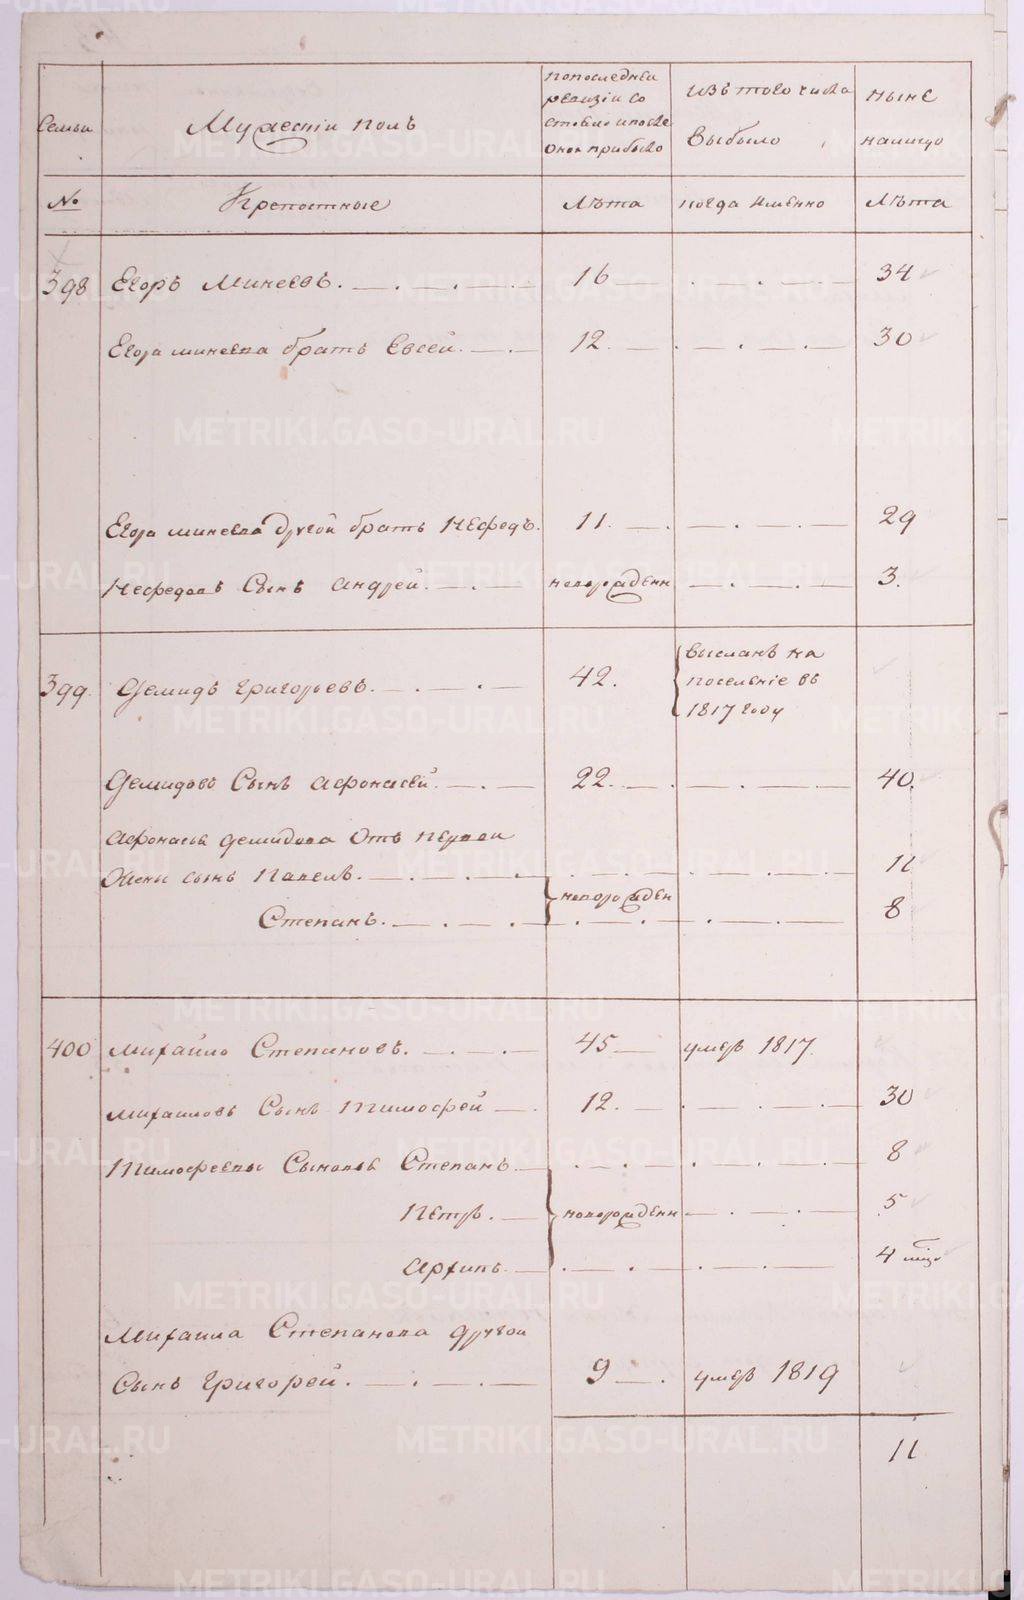 Семьи
Мужескiй полъ
попоследней
ревизiи со
стояло ипосле
оной прибыло
изъ того числа
выбыло
ныне
налицо
№
Крепостные
Лѣта
когда именно
Лѣта
398 Егоръ Минеевъ. 16 34
Егора минеева братъ Евсей. 12. 30
Егора минеева другой братъ Нефедъ. 11. 29
Нефедовъ Сынъ андрей. новорожденн 3.
399. Демидъ григорьевъ. 42. высланъ на
поселенiе въ
1817 году
Демидовъ Сынъ афонасей. 22. 40.
афонасья демидова отъ первой
жены сынъ Павелъ. 11
новорожден
Степанъ. 8
400 михайло Степановъ. 45 умеръ 1817.
михаиловъ Сынъ тимофей 12. 30
тимофеевы Сыновья Степанъ. 8
Петръ. новорожденн 5
архипъ. 4 мца
михаила Степанова другой
Сынъ григорей. 9 умеръ 1819
11
METRIKI.GASO-URAL.RU